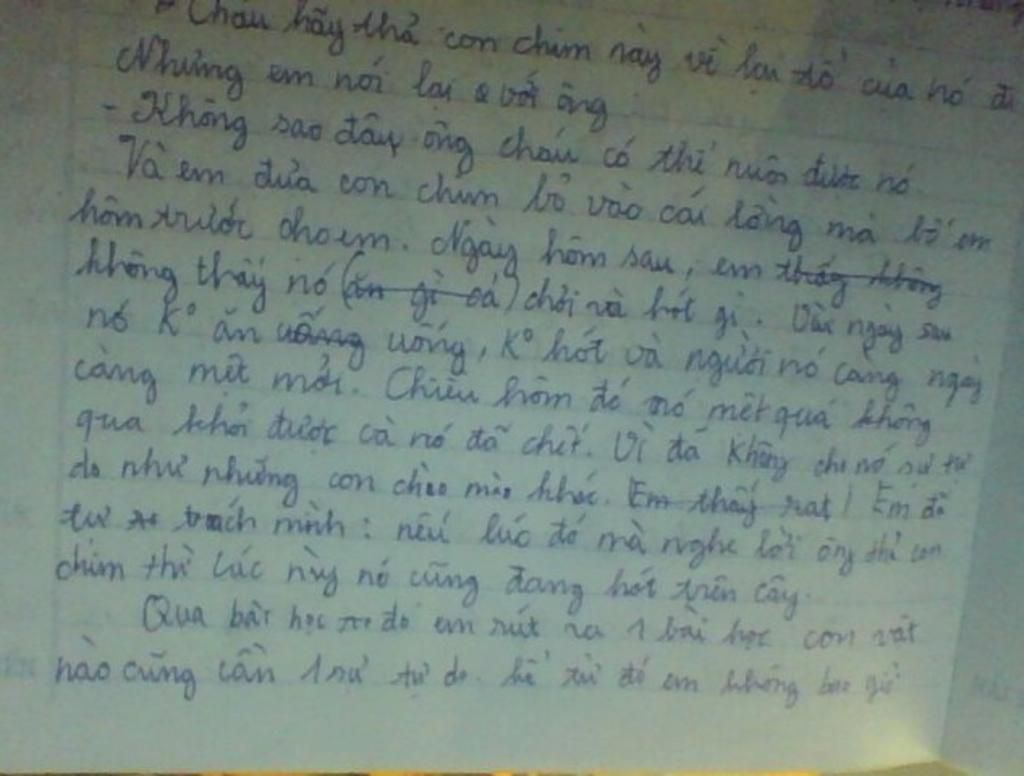 - Cháu hãy thả con chim này về lại tổ của nó đi
Nhưng em nói lại với ông
- Không sao đâu ông cháu có thể nuôi được nó
Và em đưa con chim bỏ vào cái lồng mà bố em
hôm trước cho em. Ngày hôm sau, em thấy không
không thấy nó (ăn gì cả) chơi và hót gì. Vài ngày sau
nó K° ăn uống uống, K° hót và người nó càng ngày
càng mệt mỏi. Chiều hôm đó nó mệt quá không
qua khỏi được và nó đã chết. Vì đã không cho nó sự tự
do như những con chào mào khác. Em thấy rất Em đã
tự trách mình: nếu lúc đó mà nghe lời ông thì con
chim thì lúc này nó cũng đang hót trên cây.
Qua bài học đó em rút ra 1 bài học con vật
nào cũng cần 1 sự tự do. kể từ đó em không bao giờ